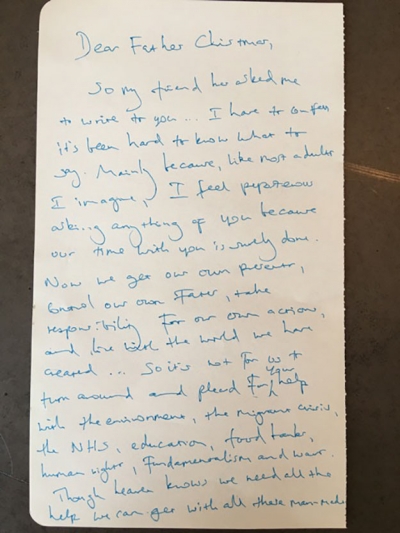 Dear Father Christmas,
So my friend has asked me
to write to you... I have to confess
it's been hard to know what to
say. Mainly because, like most adults
I imagine, I feel
asking anything of you because
our time with you is surely done.
Now we get our own presents,
our own Fates, take
responsibility for our own actions,
and live with the world we have
created... So it's not for us to
turn around and plead for your help
with the environment, the migrant crisis,
the NHS, education, food banks,
human rights, Fundamentalism and war.
Though heaven knows we need all the
help we can get with all these man-made